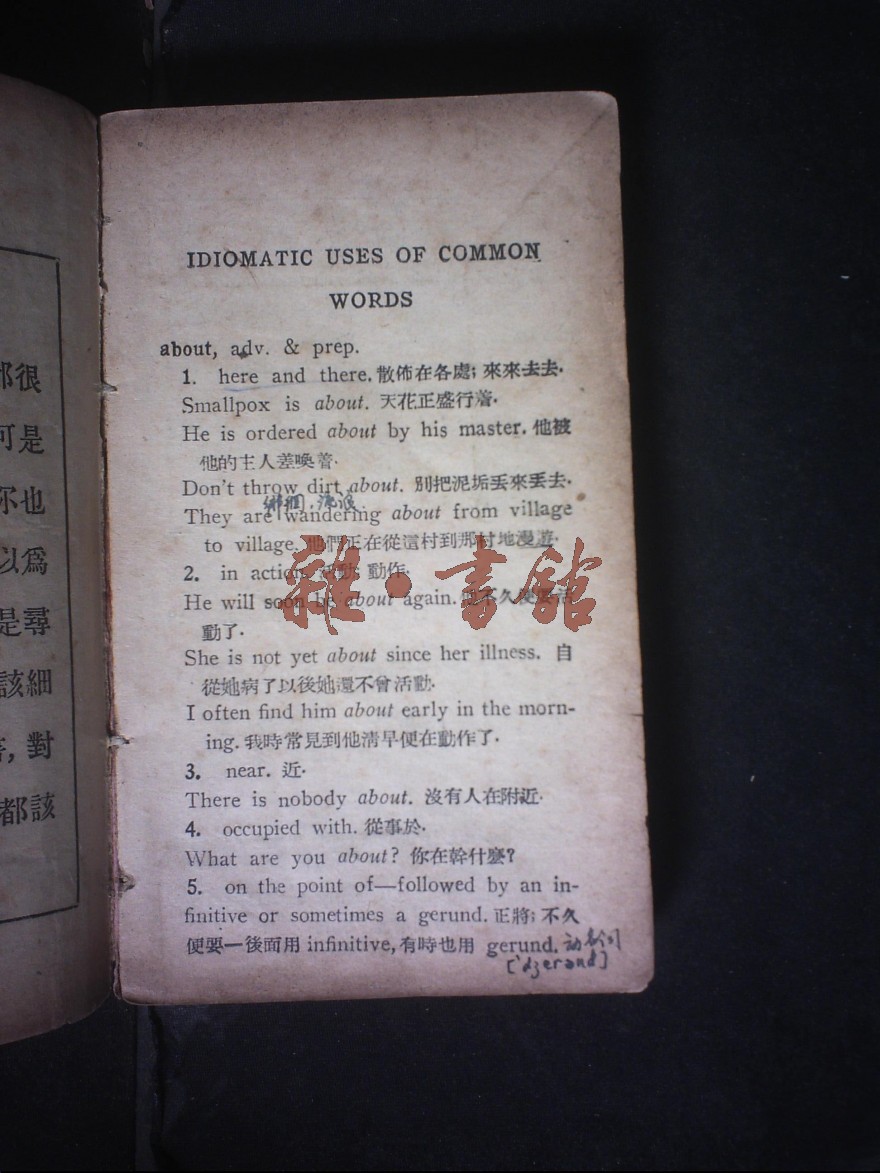 IDIOMATIC USES OF COMMON
WORDS
about, adv. & prep.
1. here and there. 散佈在各處; 來來去去.
Smallpox is about. 天花正盛行着.
He is ordered about by his master. 他被
他的主人差喚着.
Don't throw dirt about. 別把泥垢丟來丟去.
They are wandering about from village
to village. 他們正在從這村到那村地漫遊.
2. in action. 活動 動作.
He will soon be about again. 他不久便要活
動了.
She is not yet about since her illness. 自
從她病了以後她還不曾活動.
I often find him about early in the morn-
ing. 我時常見到他清早便在動作了.
3. near. 近.
There is nobody about. 沒有人在附近.
4. occupied with. 從事於.
What are you about? 你在幹什麼?
5. on the point of—followed by an in-
finitive or sometimes a gerund. 正將; 不久
便要一後面用 infinitive, 有時也用 gerund. 动名词
['dʒerənd]
雜·書館
那很
可是
不也
以爲
是尋
該細
, 對
都該